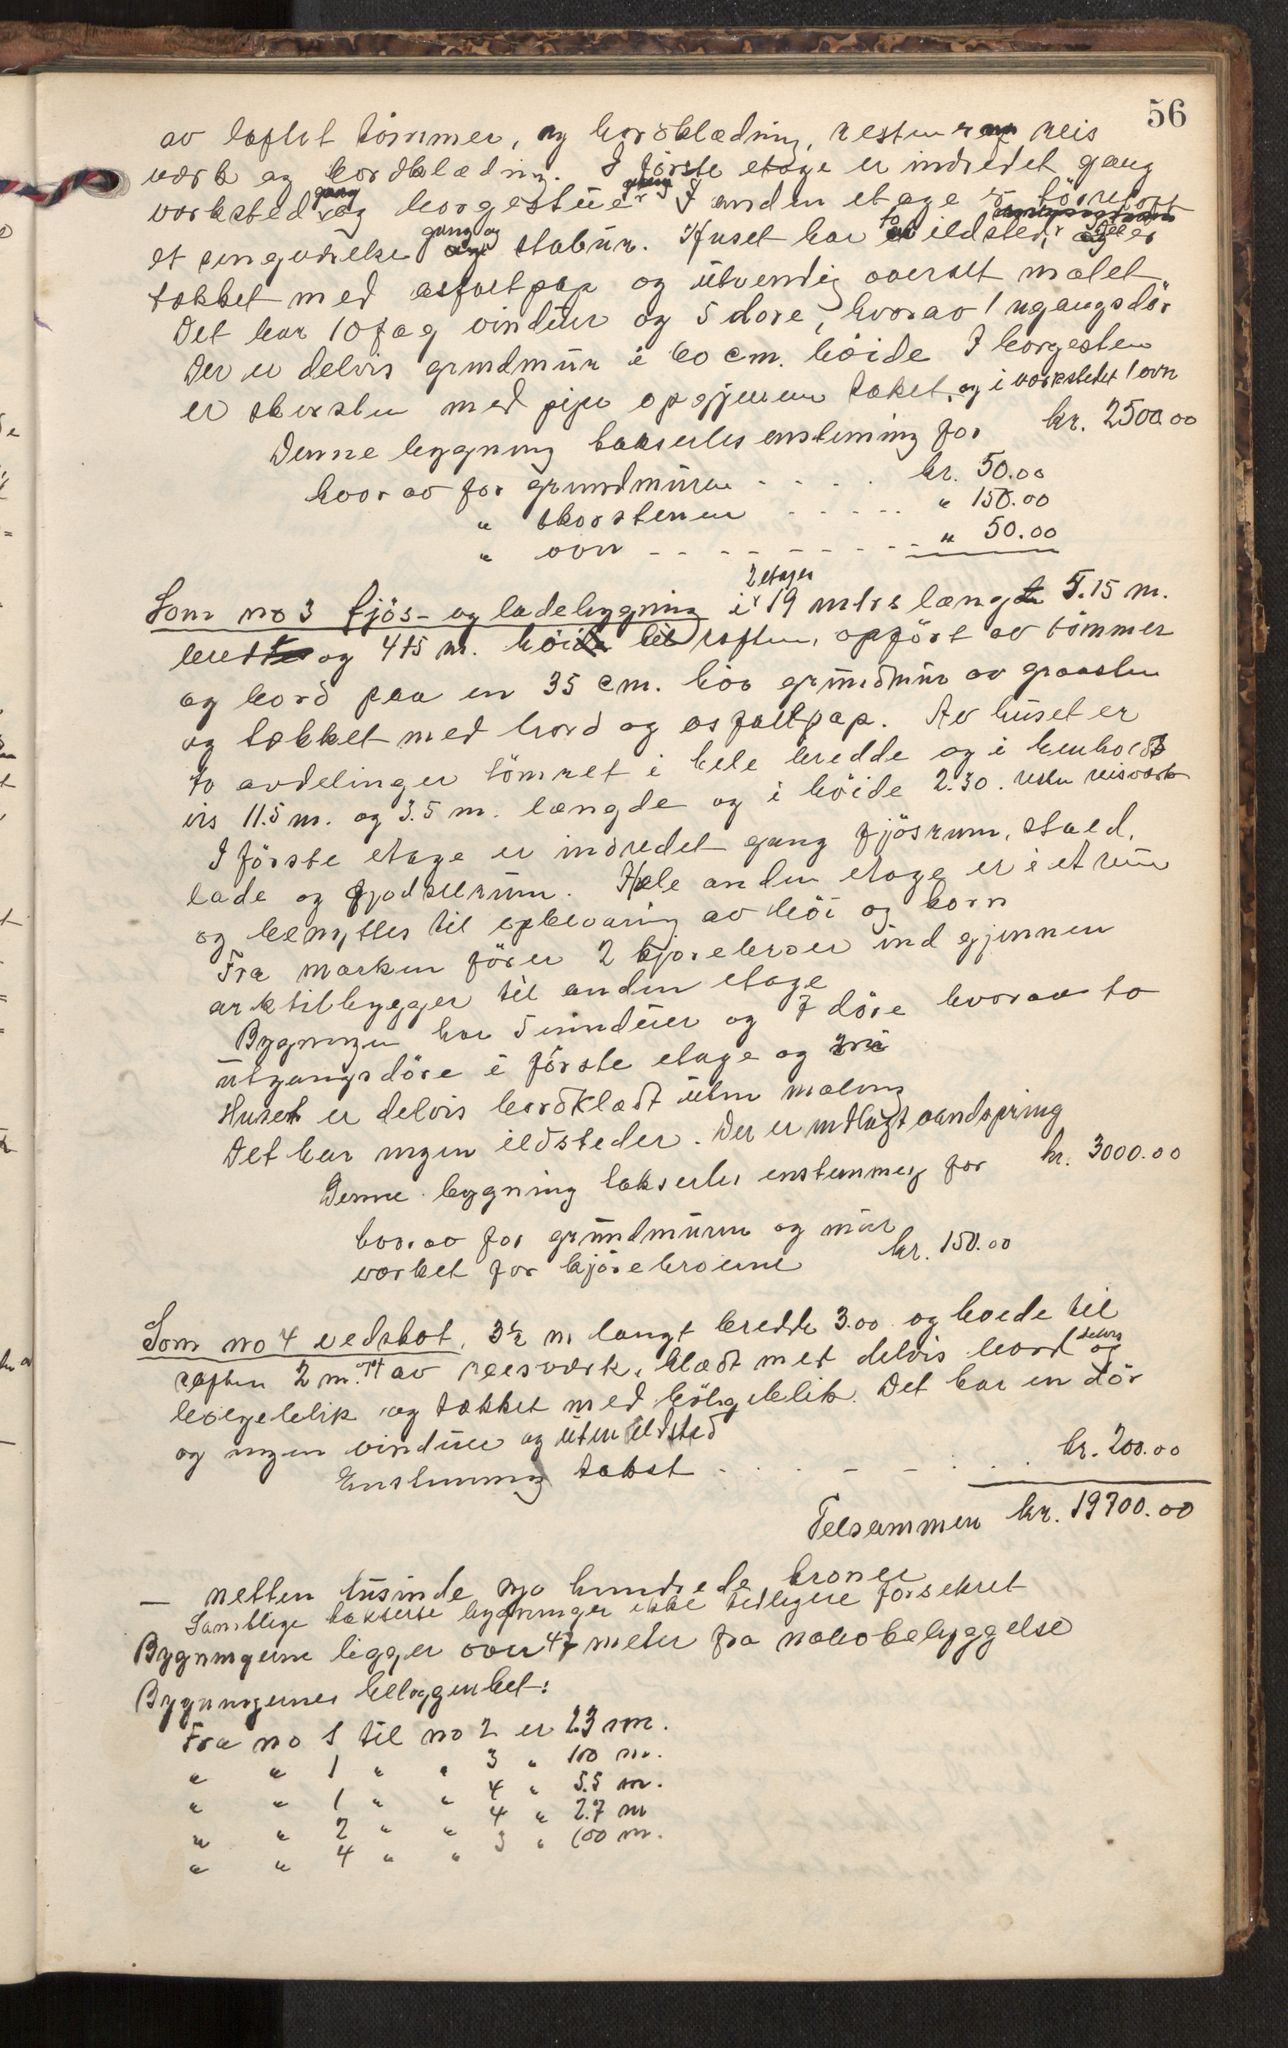 56
av laftet tømmer, og bordklædning, resten av reis
værk og bordklædning. I første etage er indredet gang
verksted gang og borgestue. I anden etage er tørreloft
et sengeværelse gang og stabur. Huset har to ildsteder, og er
tækket med asfaltpap og utvendig overalt malet
Det har 10 fag vinduer og 5 døre, hvorav 1 ugangsdør
Der er delvis grundmur i 60 cm. høide I borgesten
er skorsten med pipe opgjennem taket, og i værkstedet 1 ovn
Denne bygning takserles enstemmig for kr. 2500.00
hvorav for grundmuren - - - - . kr. 50.00
" skorstenen - - - - - - " 150.00
" ovn - - - - - - - - - " 50.00
Som no 3 fjøs- og ladebygning i 2 etager 19 mtrs længde 5.15 m.
bredde og 4.15 m. høide til raften, opført av tømmer
og bord paa en 35 cm. høi grundmur av graasten
og tækket med bord og asfaltpap. Av huset er
to avdelinger tømret i hele bredde og i henholds
vis 11.5 m. og 3.5 m. længde og i høide 2.30. resten reisværk
I første etage er indredet gang fjøsrum, stald,
lade og gjødselrum. Hele anden etage er i et rum
og benyttes til opbevaring av høi og korn
Fra marken fører 2 kjørebroer ind gjennem
arktilbygger til anden etage
Bygningen har 5 vinduer og 7 døre hvorav to
utgangsdøre i første etage og
Huset er delvis bordklædt uten maling
Det har ingen ildsteder. Der er indlagt vandspring
Denne bygning takserles enstemmig for kr. 3000.00
hvorav for grundmuren og mur
verket for kjørebroerne kr. 150.00
Som no 4 vedskot, 3½ m langt bredde 3.00 og høide til
raften 2 m. av reisværk, klædt med delvis bord og delvis
bølgeblik og tækket med bølgeblik. Det har en dør
og ingen vinduer og uten ildsted
Enstemmig takst - - - - - - - kr. 200.00
Tilsammen kr. 19700.00
— nitten tusinde syv hundrede kroner
Samtlige takserte bygninger ikke tidligere forsikret
Bygningerne ligger over 47 meter fra nabobebyggelse
Bygningernes beliggenhet:
Fra no 1 til no 2 er 23 m.
" " 1 " " 3 " 100 m.
" " 1 " " 4 " 5.5 m.
" " 2 " " 4 " 2.7 m
" " 4 " " 3 " 100 m.